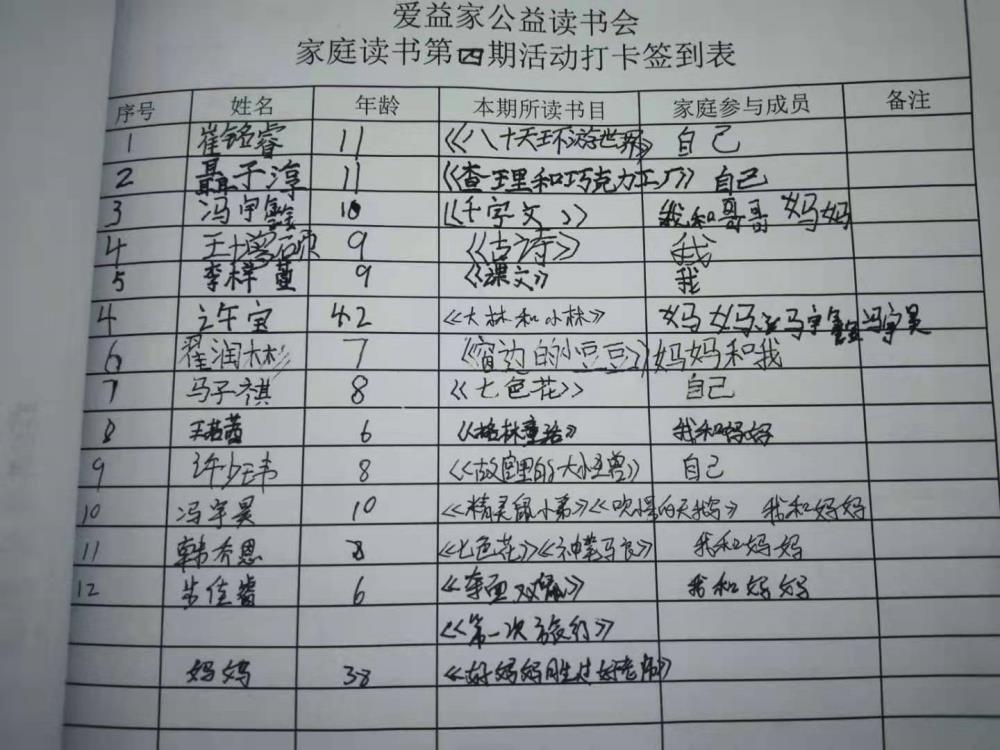 爱益家公益读书会
家庭读书第四期活动打卡签到表
序号 姓名 年龄 本期所读书目 家庭参与成员 备注
1 崔铭睿 11 《八十天环游世界》 自己
2 聂子淳 11 《查理和巧克力工厂》 自己
3 冯宇鑫 10 《千字文》 我和哥哥 妈妈
4 王 9 《古诗》 我
5 李梓萱 9 《课文》 我
4 许宝 42 《大林和小林》 妈妈 冯宇鑫 冯宇昊
6 翟润彬 7 《窗边的小豆豆》 妈妈和我
7 马子祺 8 《七色花》 自己
8 王若茜 6 《格林童话》 我和妈妈
9 许少玮 8 《故宫里的大怪兽》 自己
10 冯宇昊 10 《精灵鼠小弟》《吹小号的天鹅》 我和妈妈
11 韩乔恩 8 《七色花》《神笔马良》 我和妈妈
12 朱佳睿 6 我和妈妈
《第一次旅行》
妈妈 38 《好妈妈胜过好老师》